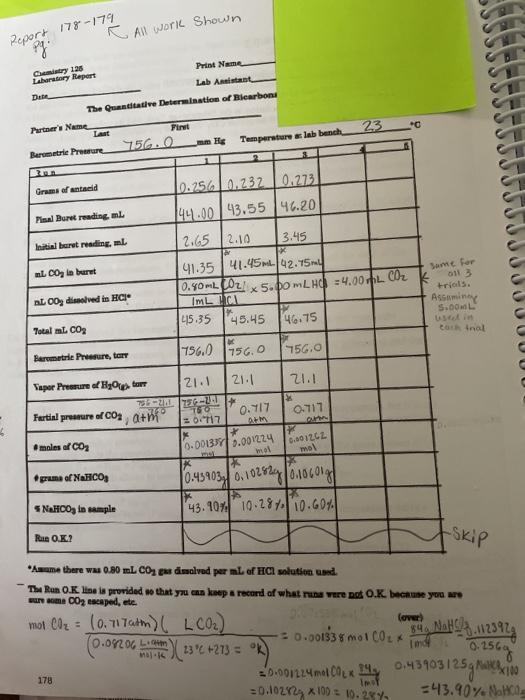 Report 178-179
pg. All work Shown
Chemistry 125
Laboratory Report
Print Name
Date
Lab Assistant
The Quantitative Determination of Bicarbon
Partner's Name
Last First
Barometric Pressure 756.0 mm Hg Temperature at lab bench 23 °C
Run 1 2 3 4 5
Grams of antacid 0.256 0.232 0.273
Final Buret reading, mL 44.00 43.55 46.20
Initial buret reading, mL 2.65 2.10 3.45
mL CO2 in buret 41.35 41.45mL 42.75mL
mL CO2 dissolved in HCl* 0.80mL CO2 x 5.00 mL HCl = 4.00 mL CO2
1mL HCl
same for
all 3
trials.
Assuming
5.00mL
used in
each trial
Total mL CO2 45.35 45.45 46.75
Barometric Pressure, torr 756.0 756.0 756.0
Vapor Pressure of H2O(g), torr 21.1 21.1 21.1
Partial pressure of CO2, atm 756-21.1 / 760 756-21.1 / 760 = 0.717 0.717 atm 0.717 atm
# moles of CO2 0.001338 mol 0.001224 mol 0.001262 mol
# grams of NaHCO3 0.43903g 0.10282g 0.10601g
% NaHCO3 in sample 43.90% 10.28% 10.60%
Run O.K.? Skip
*Assume there was 0.80 mL CO2 gas dissolved per mL of HCl solution used.
The Run O.K. line is provided so that you can keep a record of what runs were not O.K. because you are
sure some CO2 escaped, etc.
(over)
mol CO2 = (0.717atm)( L CO2)
(0.08206 L·atm / mol·K)(23°C +273 = °K)
= 0.001338 mol CO2 x 84g NaHCO3 / 1mol
.112392g
0.256g
= 0.001224mol CO2 x 84g / 1mol
0.43903125g NaHCO3 x100
178
= 0.10282g x 100 = 10.28%
= 43.90% NaHCO3